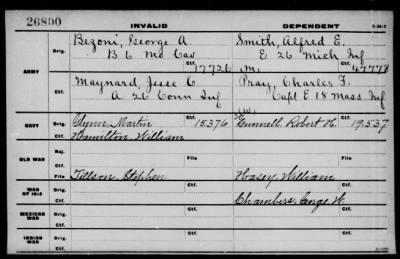 26800 INVALID DEPENDENT
ARMY
Orig. Bezoni, George A. Smith, Alfred E.
B 6 Mo Cav E 26 Mich Inf
Ctf. 17726 M. 47778
Orig. Maynard, Jesse C Pray, Charles F.
A 26 Conn Inf Capt E 18 Mass. Inf
Ctf.
NAVY
Orig. Glynn, Martin 15376 Gunnell, Robert H. 19537
Ctf. Hamilton, William
OLD WAR
Rej.
Ctf. File File
WAR OF 1812
Orig. Tillson, Stephen Hasey, William
Ctf. Ctf.
MEXICAN WAR
Orig. Chambers, H.
Ctf. Ctf.
INDIAN WAR
Orig.
Ctf. Ctf.